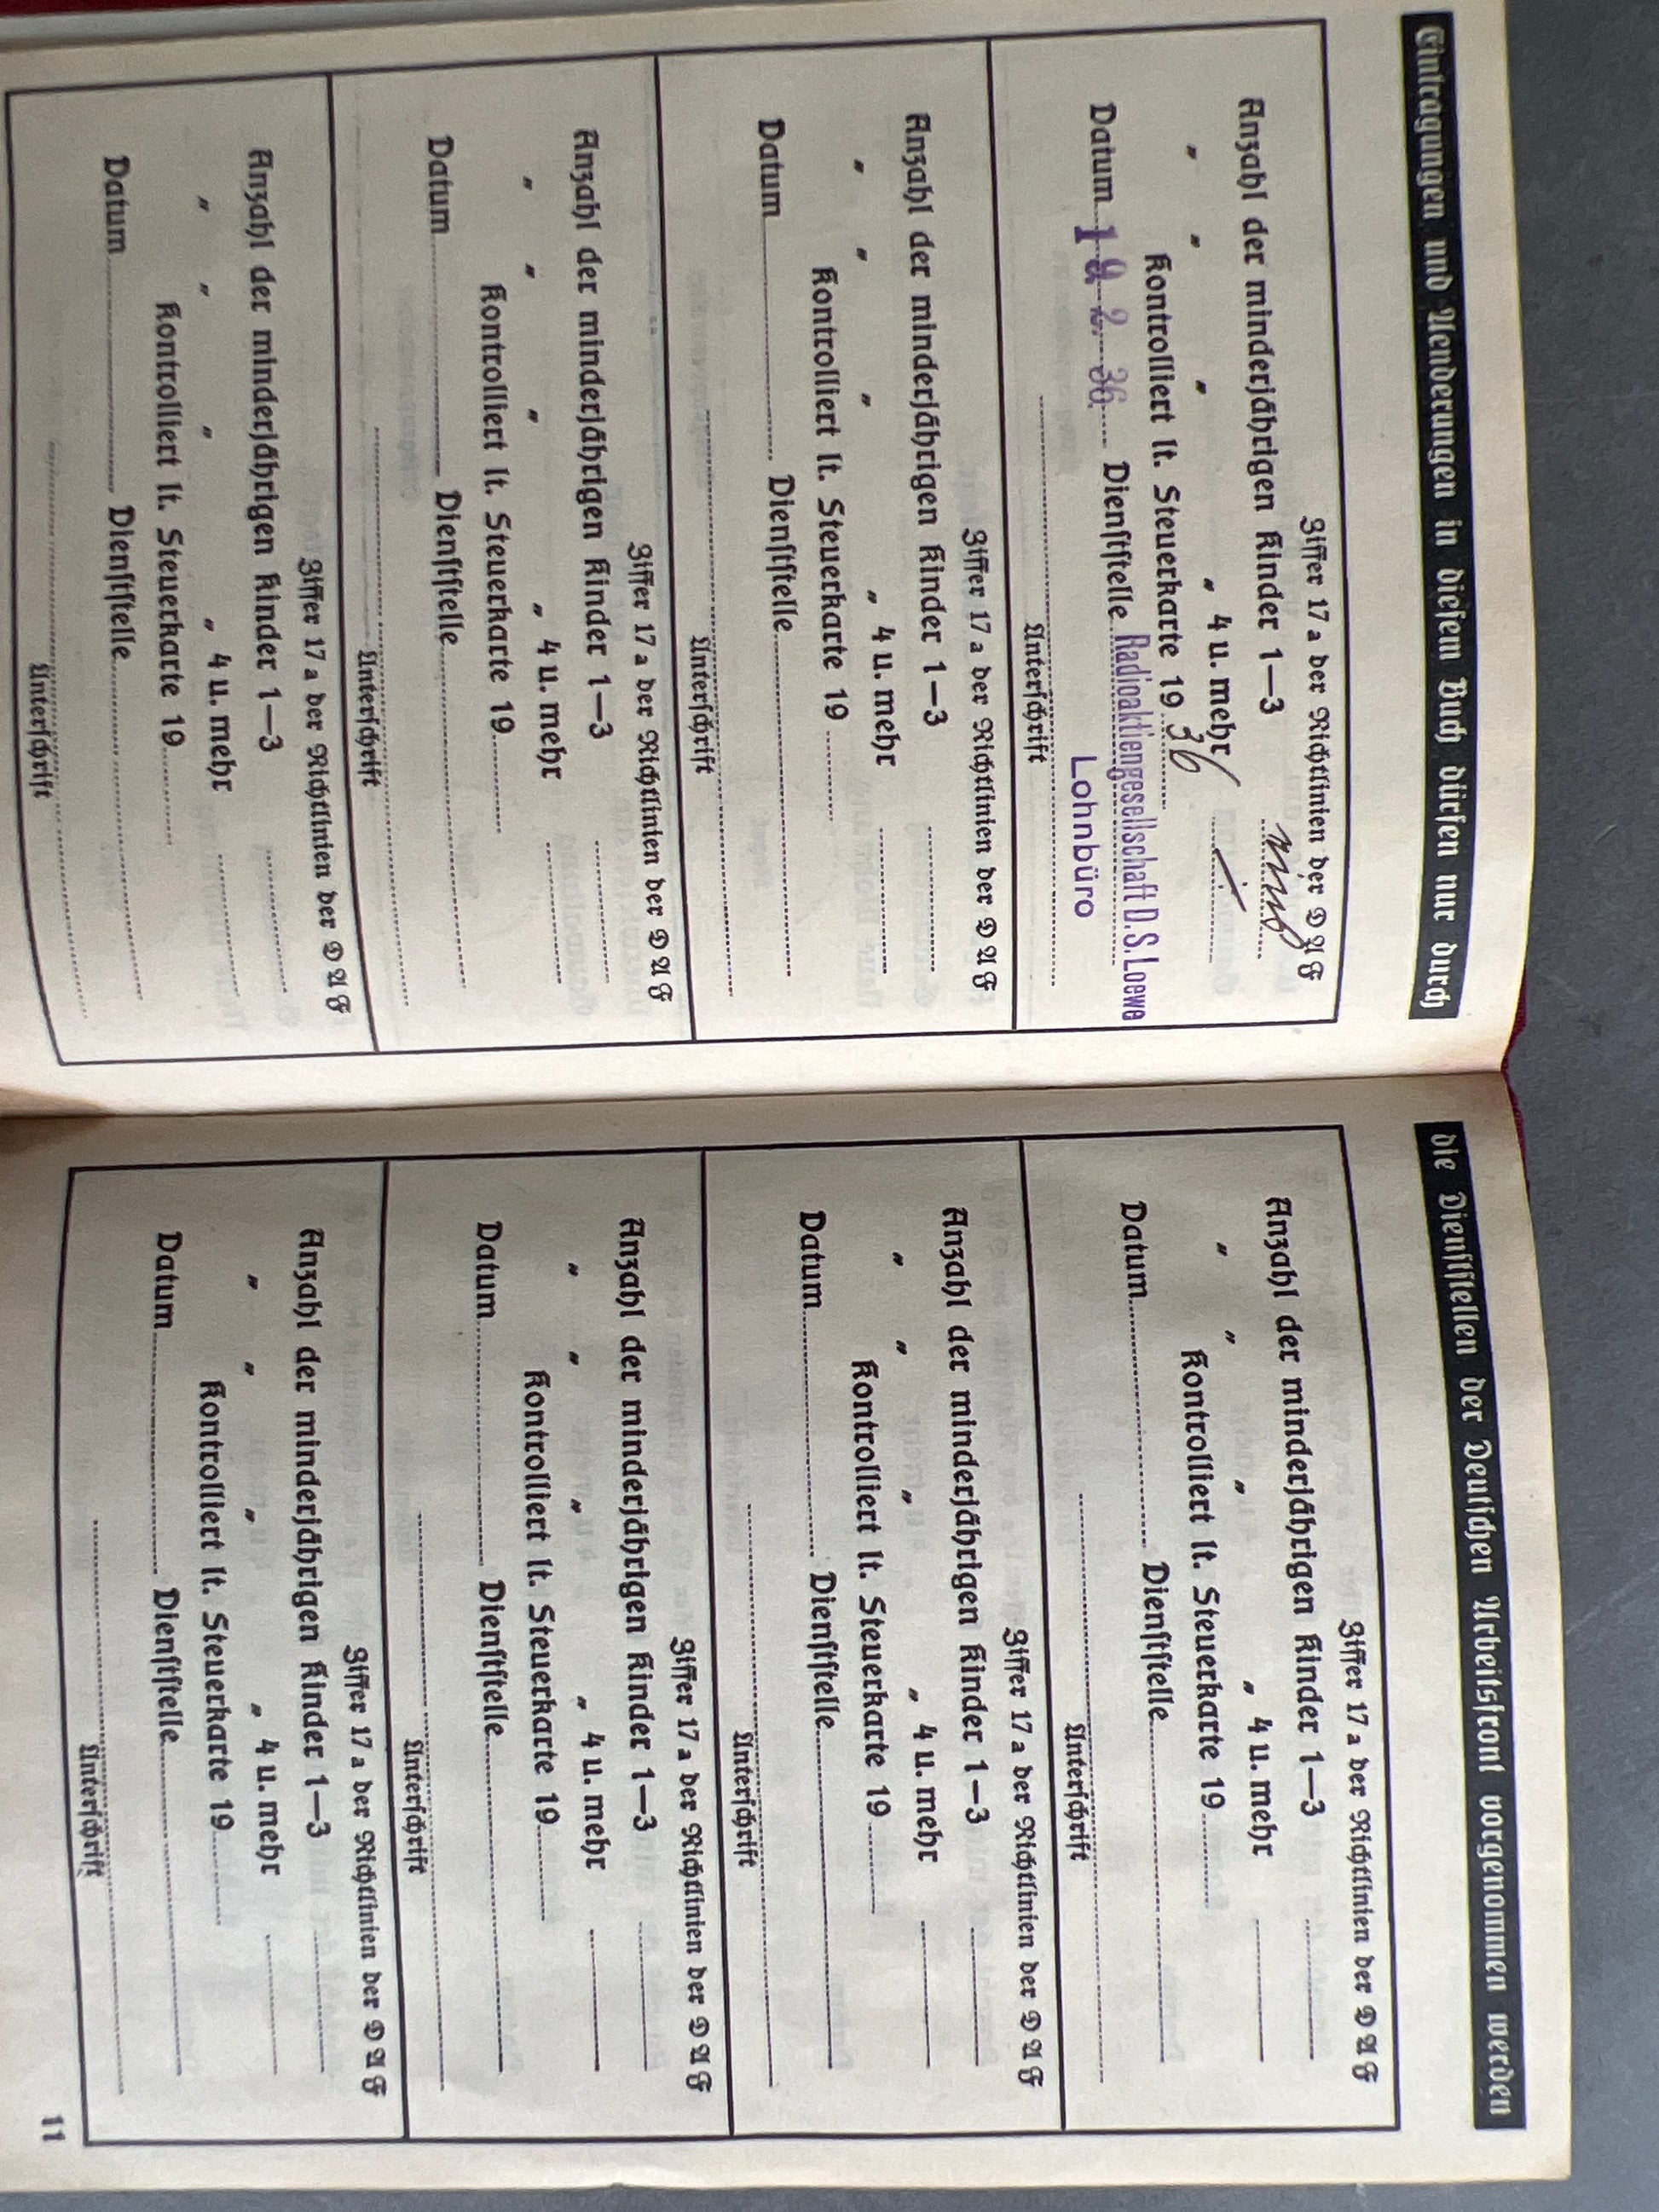 Eintragungen und Aenderungen in diesem Buch dürfen nur durch
Ziffer 17 a der Richtlinien der DAF
Anzahl der minderjährigen Kinder 1—3
„ „ „ „ 4 u. mehr
Kontrolliert lt. Steuerkarte 19 36
Datum 2. 36. Dienststelle Radioaktiengesellschaft D.S. Loewe
Lohnbüro
Unterschrift
Ziffer 17 a der Richtlinien der DAF
Anzahl der minderjährigen Kinder 1—3
„ „ „ „ 4 u. mehr
Kontrolliert lt. Steuerkarte 19
Datum Dienststelle
Unterschrift
Ziffer 17 a der Richtlinien der DAF
Anzahl der minderjährigen Kinder 1—3
„ „ „ „ 4 u. mehr
Kontrolliert lt. Steuerkarte 19
Datum Dienststelle
Unterschrift
Ziffer 17 a der Richtlinien der DAF
Anzahl der minderjährigen Kinder 1—3
„ „ „ „ 4 u. mehr
Kontrolliert lt. Steuerkarte 19
Datum Dienststelle
Unterschrift
die Dienststellen der Deutschen Arbeitsfront vorgenommen werden
Ziffer 17 a der Richtlinien der DAF
Anzahl der minderjährigen Kinder 1—3
„ „ „ „ 4 u. mehr
Kontrolliert lt. Steuerkarte 19
Datum Dienststelle
Unterschrift
Ziffer 17 a der Richtlinien der DAF
Anzahl der minderjährigen Kinder 1—3
„ „ „ „ 4 u. mehr
Kontrolliert lt. Steuerkarte 19
Datum Dienststelle
Unterschrift
Ziffer 17 a der Richtlinien der DAF
Anzahl der minderjährigen Kinder 1—3
„ „ „ „ 4 u. mehr
Kontrolliert lt. Steuerkarte 19
Datum Dienststelle
Unterschrift
Ziffer 17 a der Richtlinien der DAF
Anzahl der minderjährigen Kinder 1—3
„ „ „ „ 4 u. mehr
Kontrolliert lt. Steuerkarte 19
Datum Dienststelle
Unterschrift
11